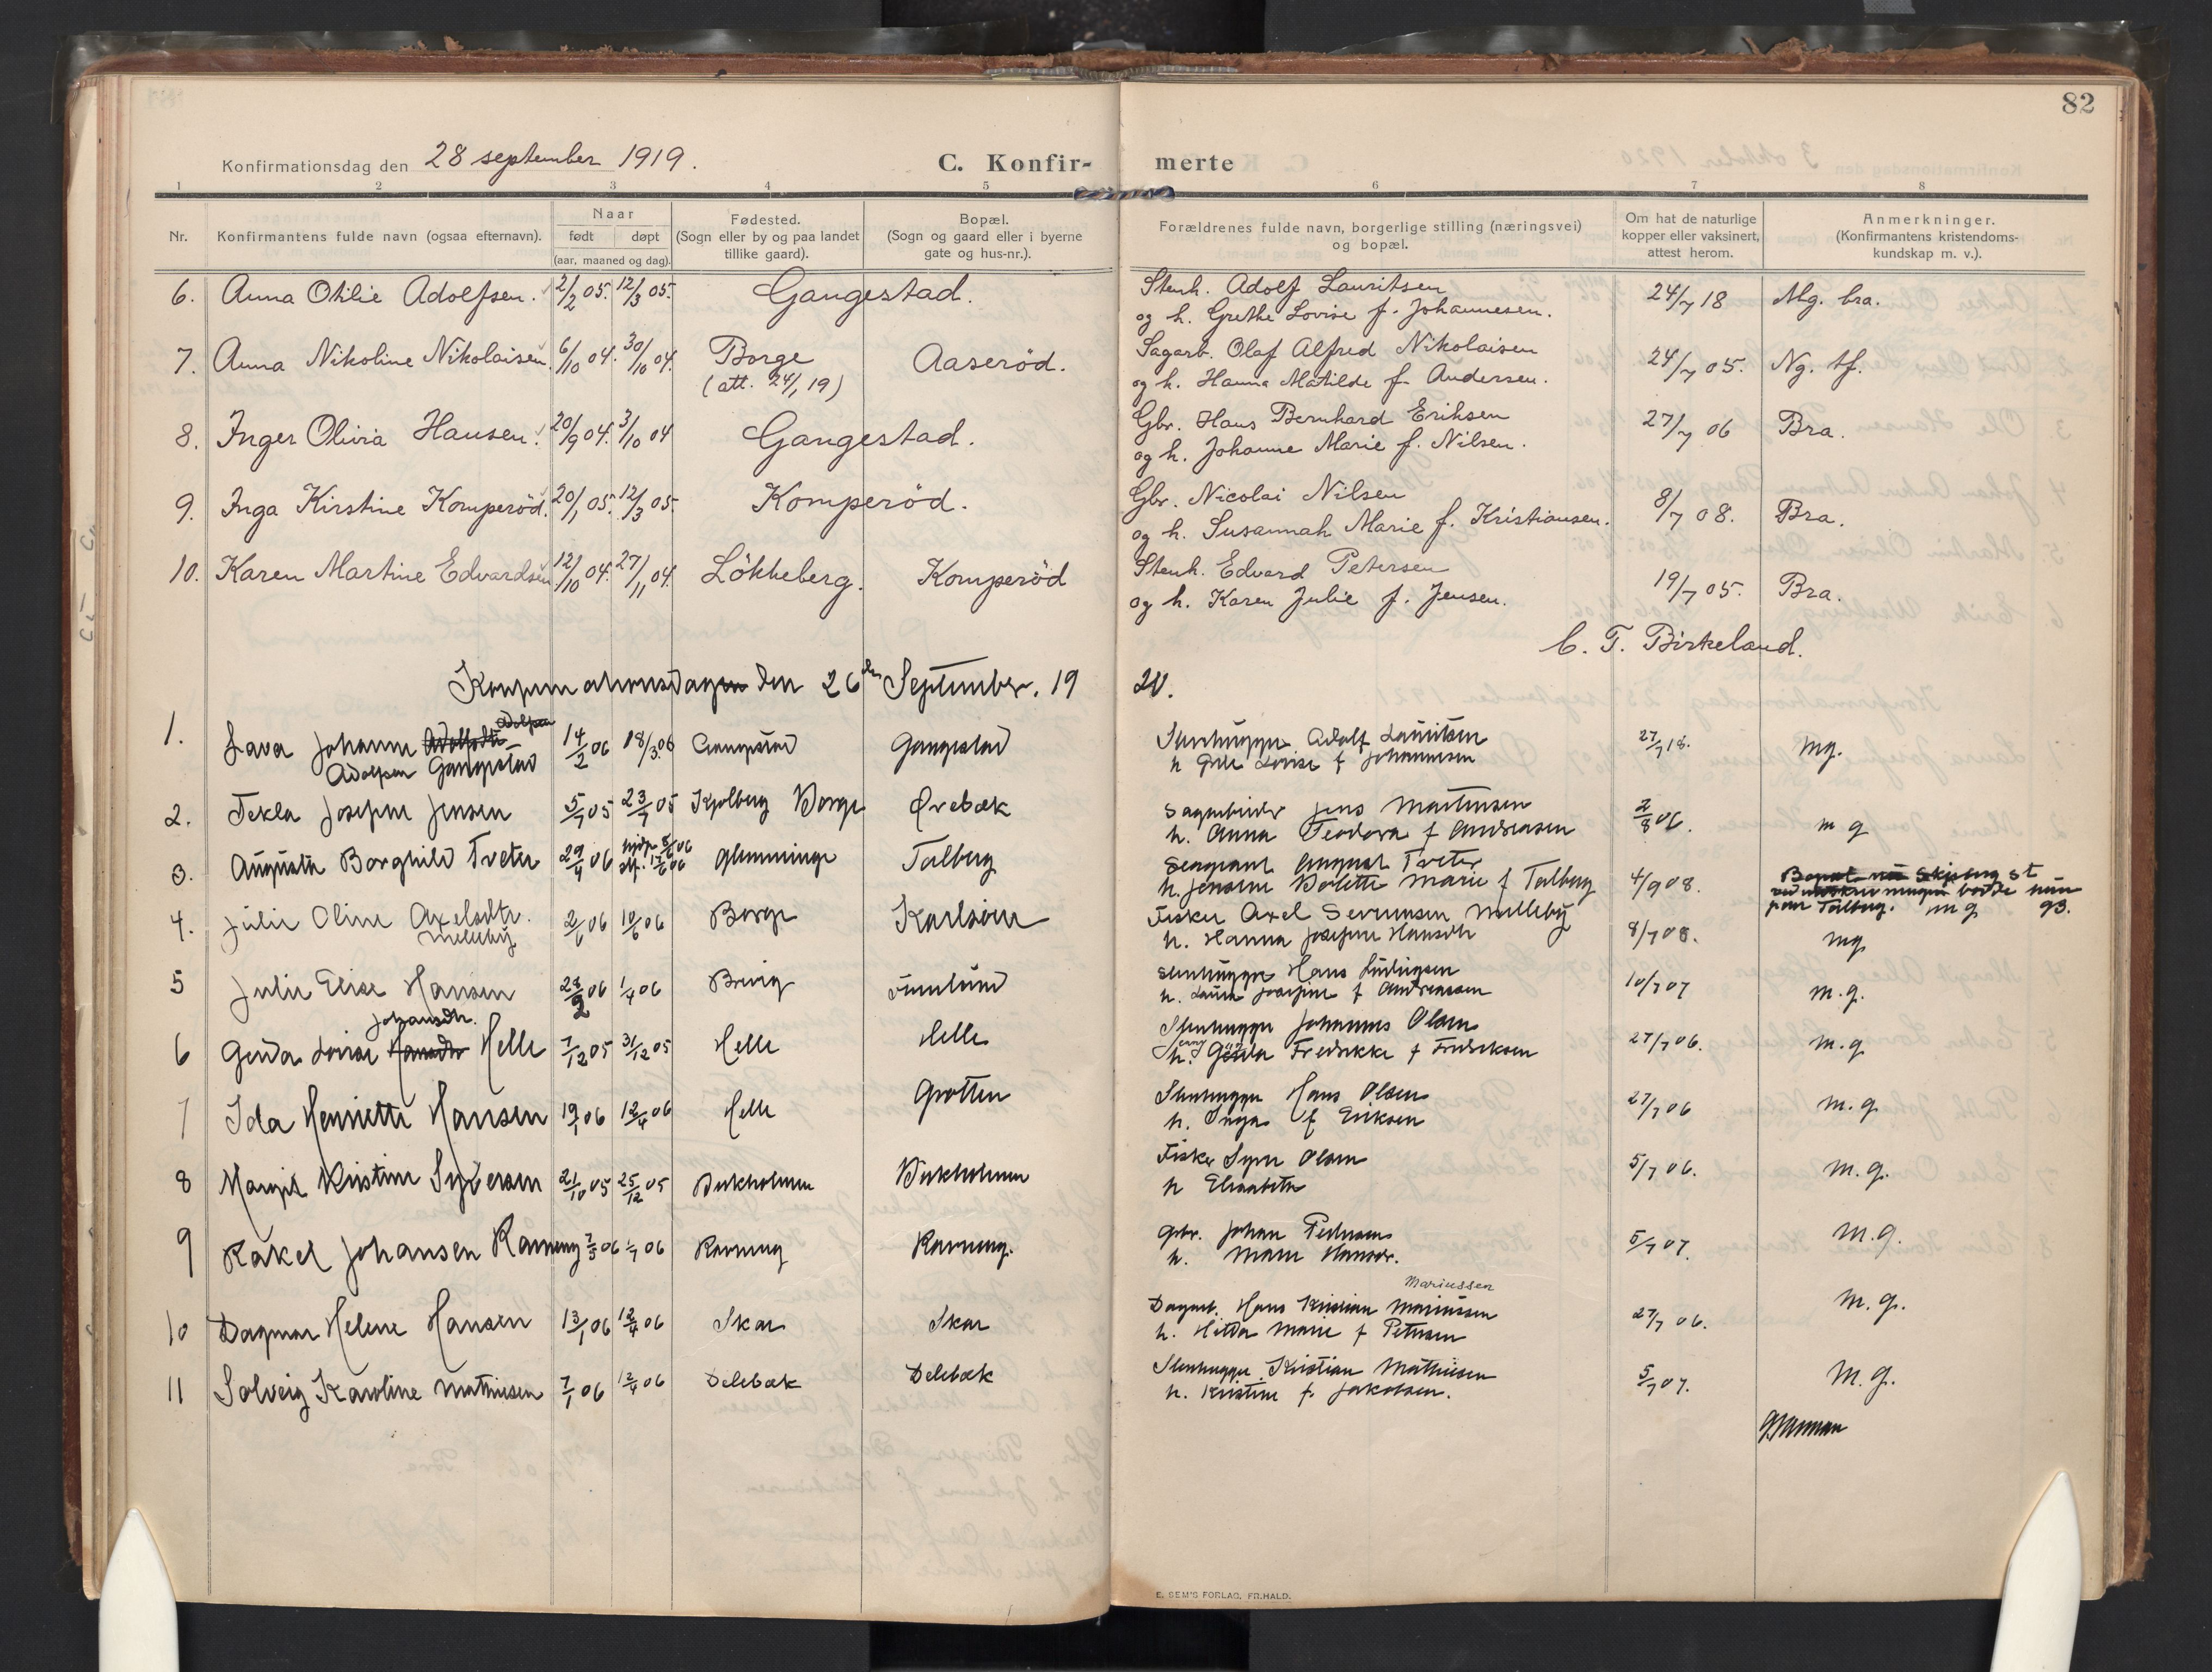 82
Konfirmationsdag den 28 september 1919.
C. Konfir-
merte
1 2 3 4 5 6 7 8
Nr.
Konfirmantens fulde navn (ogsaa efternavn).
Naar
født døpt
(aar, maaned og dag).
Fødested.
(Sogn eller by og paa landet
tillike gaard).
Bopæl.
(Sogn og gaard eller i byerne
gate og hus-nr.).
Forældrenes fulde navn, borgerlige stilling (næringsvei)
og bopæl.
Om hat de naturlige
kopper eller vaksinert,
attest herom.
Anmerkninger.
(Konfirmantens kristendoms-
kundskap m. v.).
6. Anna Othilie Adolfsen. 2/2 05. 12/3 05. Gangestad. Stenh. Adolf Lauritsen 24/7 18 Mg. bra.
og h. Grethe Lovise f. Johannesen.
7. Anna Nikoline Nikolaisen 6/10 04. 30/10 04. Borge Aaserød. Sagarb. Olaf Alfred Nikolaisen 24/7 05. Ng. tf.
(att. 24/1 19) og h. Hanna Matilde f. Andersen.
8. Inger Olivia Hansen. 20/9 04. 3/10 04 Gangestad. Gbr. Hans Bernhard Eriksen 27/7 06 Bra.
og h. Johanne Marie f. Nilsen.
9. Inga Kirstine Komperöd. 20/1 05. 12/3 05. Komperöd. Gbr. Nicolai Nilsen 8/7 08. Bra.
og h. Susannah Marie f. Kristiansen.
10. Karen Martine Edvardsen 12/10 04. 27/11 04. Lökkeberg. Komperöd Stenh. Edvard Petersen 19/7 05. Bra.
og h. Karen Julie f. Jensen.
C. T. Birkeland.
Konfirmationsdagen den 26 September. 19 20.
Adolfsen
1. Lava Johanne 14/2 06 18/3 06 Gangestad Gangestad Stenhugger Adolf Lauritsen 27/7 18. mg.
Adolfsen Gangestad h. Lovise f Johannesen
2. Tekla Josefine Jensen 5/7 05 23/7 05 Kjølberg Borge Ørebæk Sagarbeider Jens Martinsen 2/8 06. m g
h. Anna Teodora f Andreasen
3. Augusta Borghild Tveter 29/4 06 Glemminge Talberg Sergeant August Tveter 4/9 08.
h. Jensine Bolette Marie f Talberg paa Talberg. mg 93.
4. Julie Oline Axelsdtr. 2/6 06 10/6 06 Borge Karlsøen Fisker Axel Severinsen Melleby 8/7 08. mg
Melleby h. Hanna Josefine Hansdtr
5 Julie Elise Hansen 28/2 06 1/4 06 Brevig Stenhugger Hans Ludvigsen 10/7 07 m.g.
h. Laura Josefine f Andreassen
Johansdtr.
6 Gerda Lovise Helle 7/12 05 31/12 05 Helle Helle Stenhugger Johannes Olsen 27/7 06. m.g
h. Fredrikke f Fredriksen
7 Ida Henriette Hansen 19/1 06 12/4 06 Helle Grotten Stenhugger Hans Olsen 27/7 06 m.g
h. Inga f Eriksen
8 Margit Kristine Syversen 21/10 05 25/12 05 Birkholmen Birkholmen Fisker Syver Olsen 5/7 06. m.g.
h Elisabeth
9 Rakel Johansen Ramneng 7/5 06 1/7 06 Ramneng Ramneng. Gbr. Johan Pedersen 5/7 07. m.g.
h. Marie Hansdr.
Mariussen
10 Dagmar Helene Hansen 13/1 06 12/4 06 Skar Skar Dagarb. Hans Kristian Mariussen 27/7 06. m.g.
h. Hilda Marie f Petersen
11 Solveig Karoline Mathiesen 7/1 06 12/4 06 Delebæk Delebæk Stenhugger Kristian Mathiesen 5/7 07. m.g.
h. Kristine f. Jakobsen.
E. SEM'S FORLAG, FR.HALD.